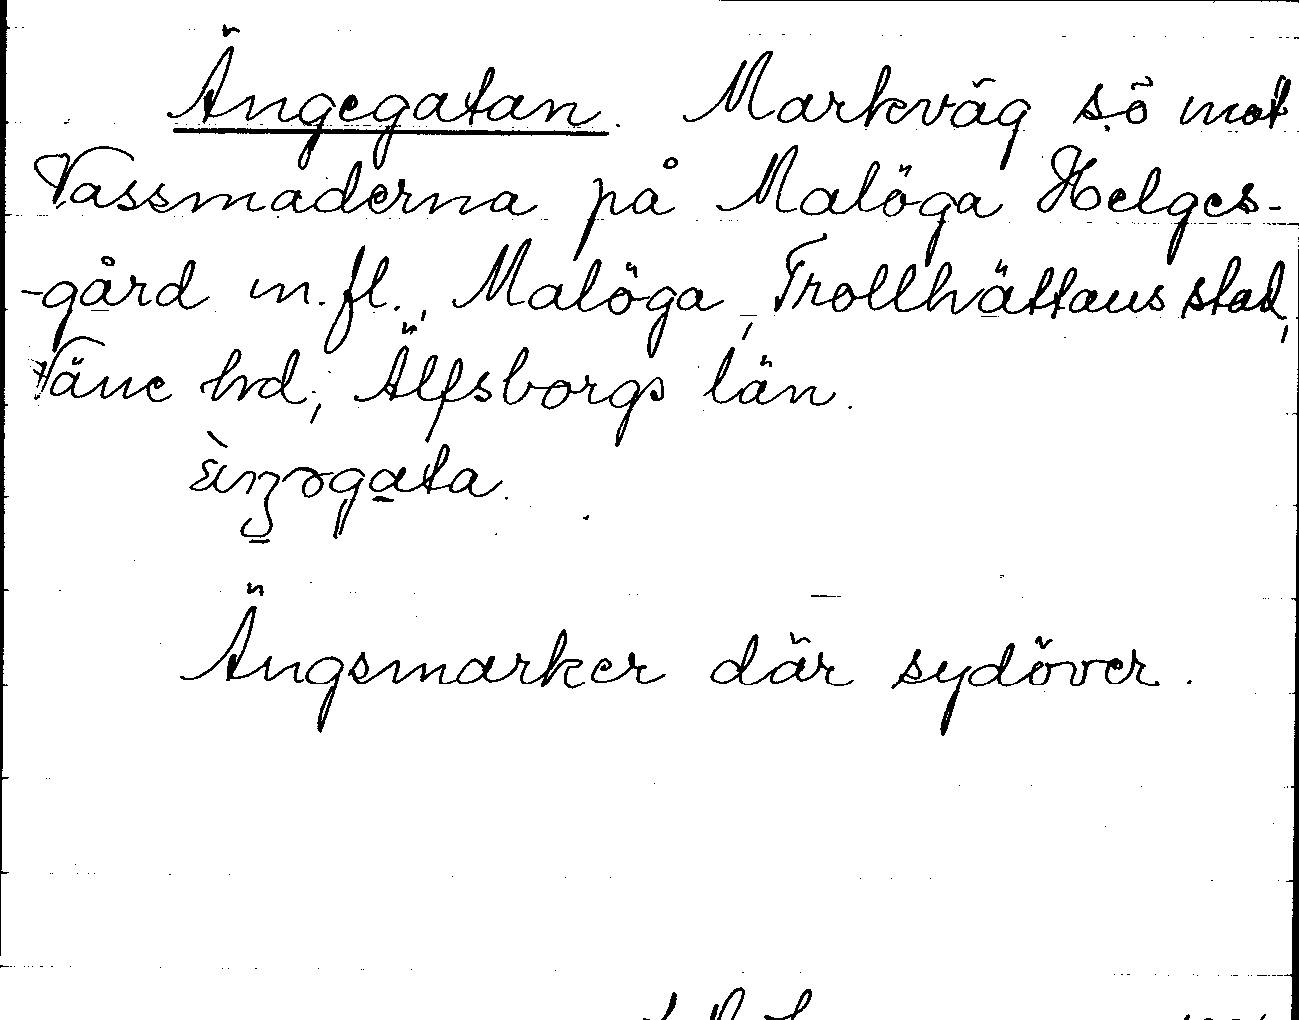 Ängegatan. Markväg sö mot
Vassmaderna på Malöga Helges-
-gård m.fl., Malöga, Trollhättans stad,
Väne hd, Älfsborgs län.
ä̀ŋəgata.
Ängsmarker där sydöver.